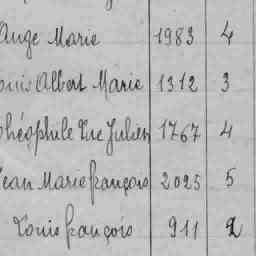 Ange Marie 1983 4
Louis Albert Marie 1312 3
Théophile Luc Julien 1767 4
Jean Marie françois 2025 5
Louis françois 911 2